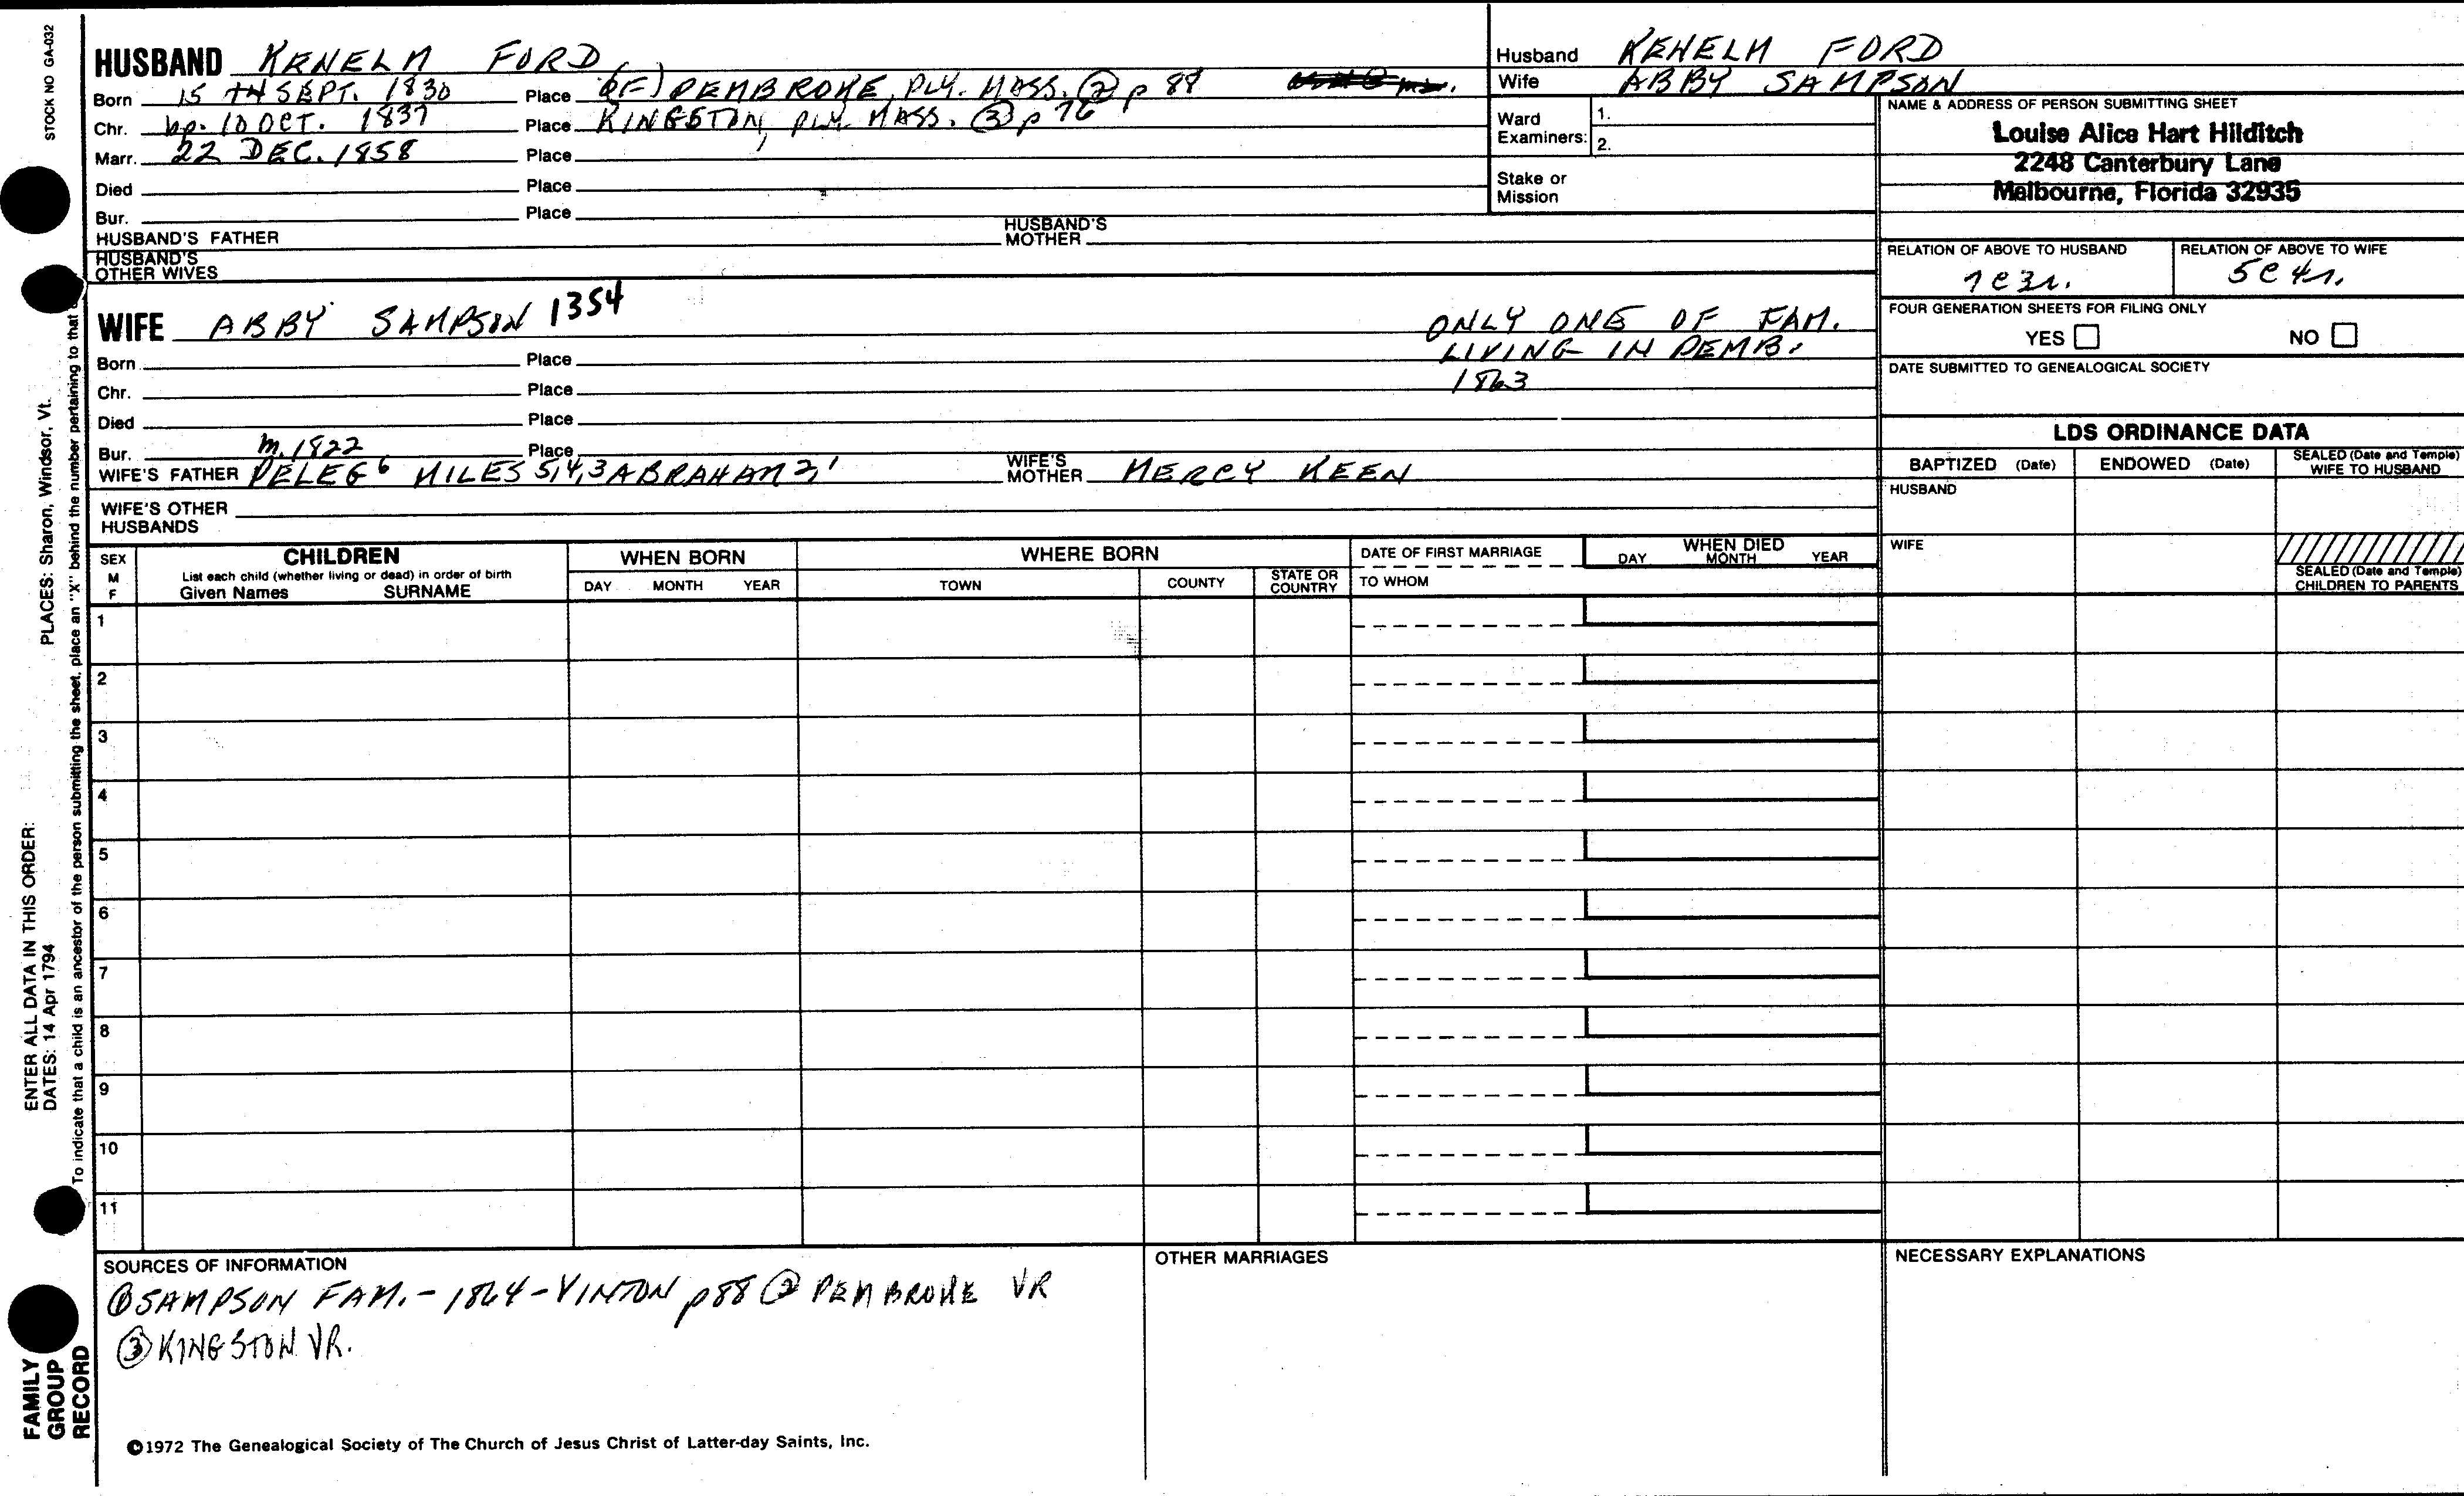 STOCK NO GA-032
HUSBAND KENELM FORD
Born 15 TH SEPT. 1830 Place (OF) PEMBROKE, PLY. MASS. ② p 88
Chr. bp. 10 OCT. 1837 Place KINGSTON, PLY. MASS. ③ p 76
Marr. 22 DEC. 1858 Place
Died Place
Bur. Place
HUSBAND'S FATHER HUSBAND'S MOTHER
HUSBAND'S OTHER WIVES
Husband KENELM FORD
Wife ABBY SAMPSON
Ward Examiners: 1.
2.
Stake or Mission
NAME & ADDRESS OF PERSON SUBMITTING SHEET
Louise Alice Hart Hilditch
2248 Canterbury Lane
Melbourne, Florida 32935
RELATION OF ABOVE TO HUSBAND RELATION OF ABOVE TO WIFE
7C3r. 5C4r.
FOUR GENERATION SHEETS FOR FILING ONLY
YES NO
DATE SUBMITTED TO GENEALOGICAL SOCIETY
WIFE ABBY SAMPSON 1354
ONLY ONE OF FAM.
LIVING IN PEMB.
1863
Born Place
Chr. Place
Died Place
Bur. m. 1822 Place
WIFE'S FATHER PELEG 6 MILES 5,4,3 ABRAHAM 2,1 WIFE'S MOTHER MERCY KEEN
WIFE'S OTHER HUSBANDS
LDS ORDINANCE DATA
BAPTIZED (Date) ENDOWED (Date) SEALED (Date and Temple) WIFE TO HUSBAND
HUSBAND
WIFE
SEALED (Date and Temple) CHILDREN TO PARENTS
SEX M F
CHILDREN
List each child (whether living or dead) in order of birth
Given Names SURNAME
WHEN BORN
DAY MONTH YEAR
WHERE BORN
TOWN COUNTY STATE OR COUNTRY
DATE OF FIRST MARRIAGE
TO WHOM
WHEN DIED
DAY MONTH YEAR
1
2
3
4
5
6
7
8
9
10
11
SOURCES OF INFORMATION
① SAMPSON FAM. - 1864 - VINTON p88 ② PEMBROKE VR
③ KINGSTON VR.
OTHER MARRIAGES
NECESSARY EXPLANATIONS
©1972 The Genealogical Society of The Church of Jesus Christ of Latter-day Saints, Inc.
PLACES: Sharon, Windsor, Vt.
ENTER ALL DATA IN THIS ORDER:
DATES: 14 Apr 1794
To indicate that a child is an ancestor of the person submitting the sheet, place an "X" behind the number pertaining to that
FAMILY
GROUP
RECORD